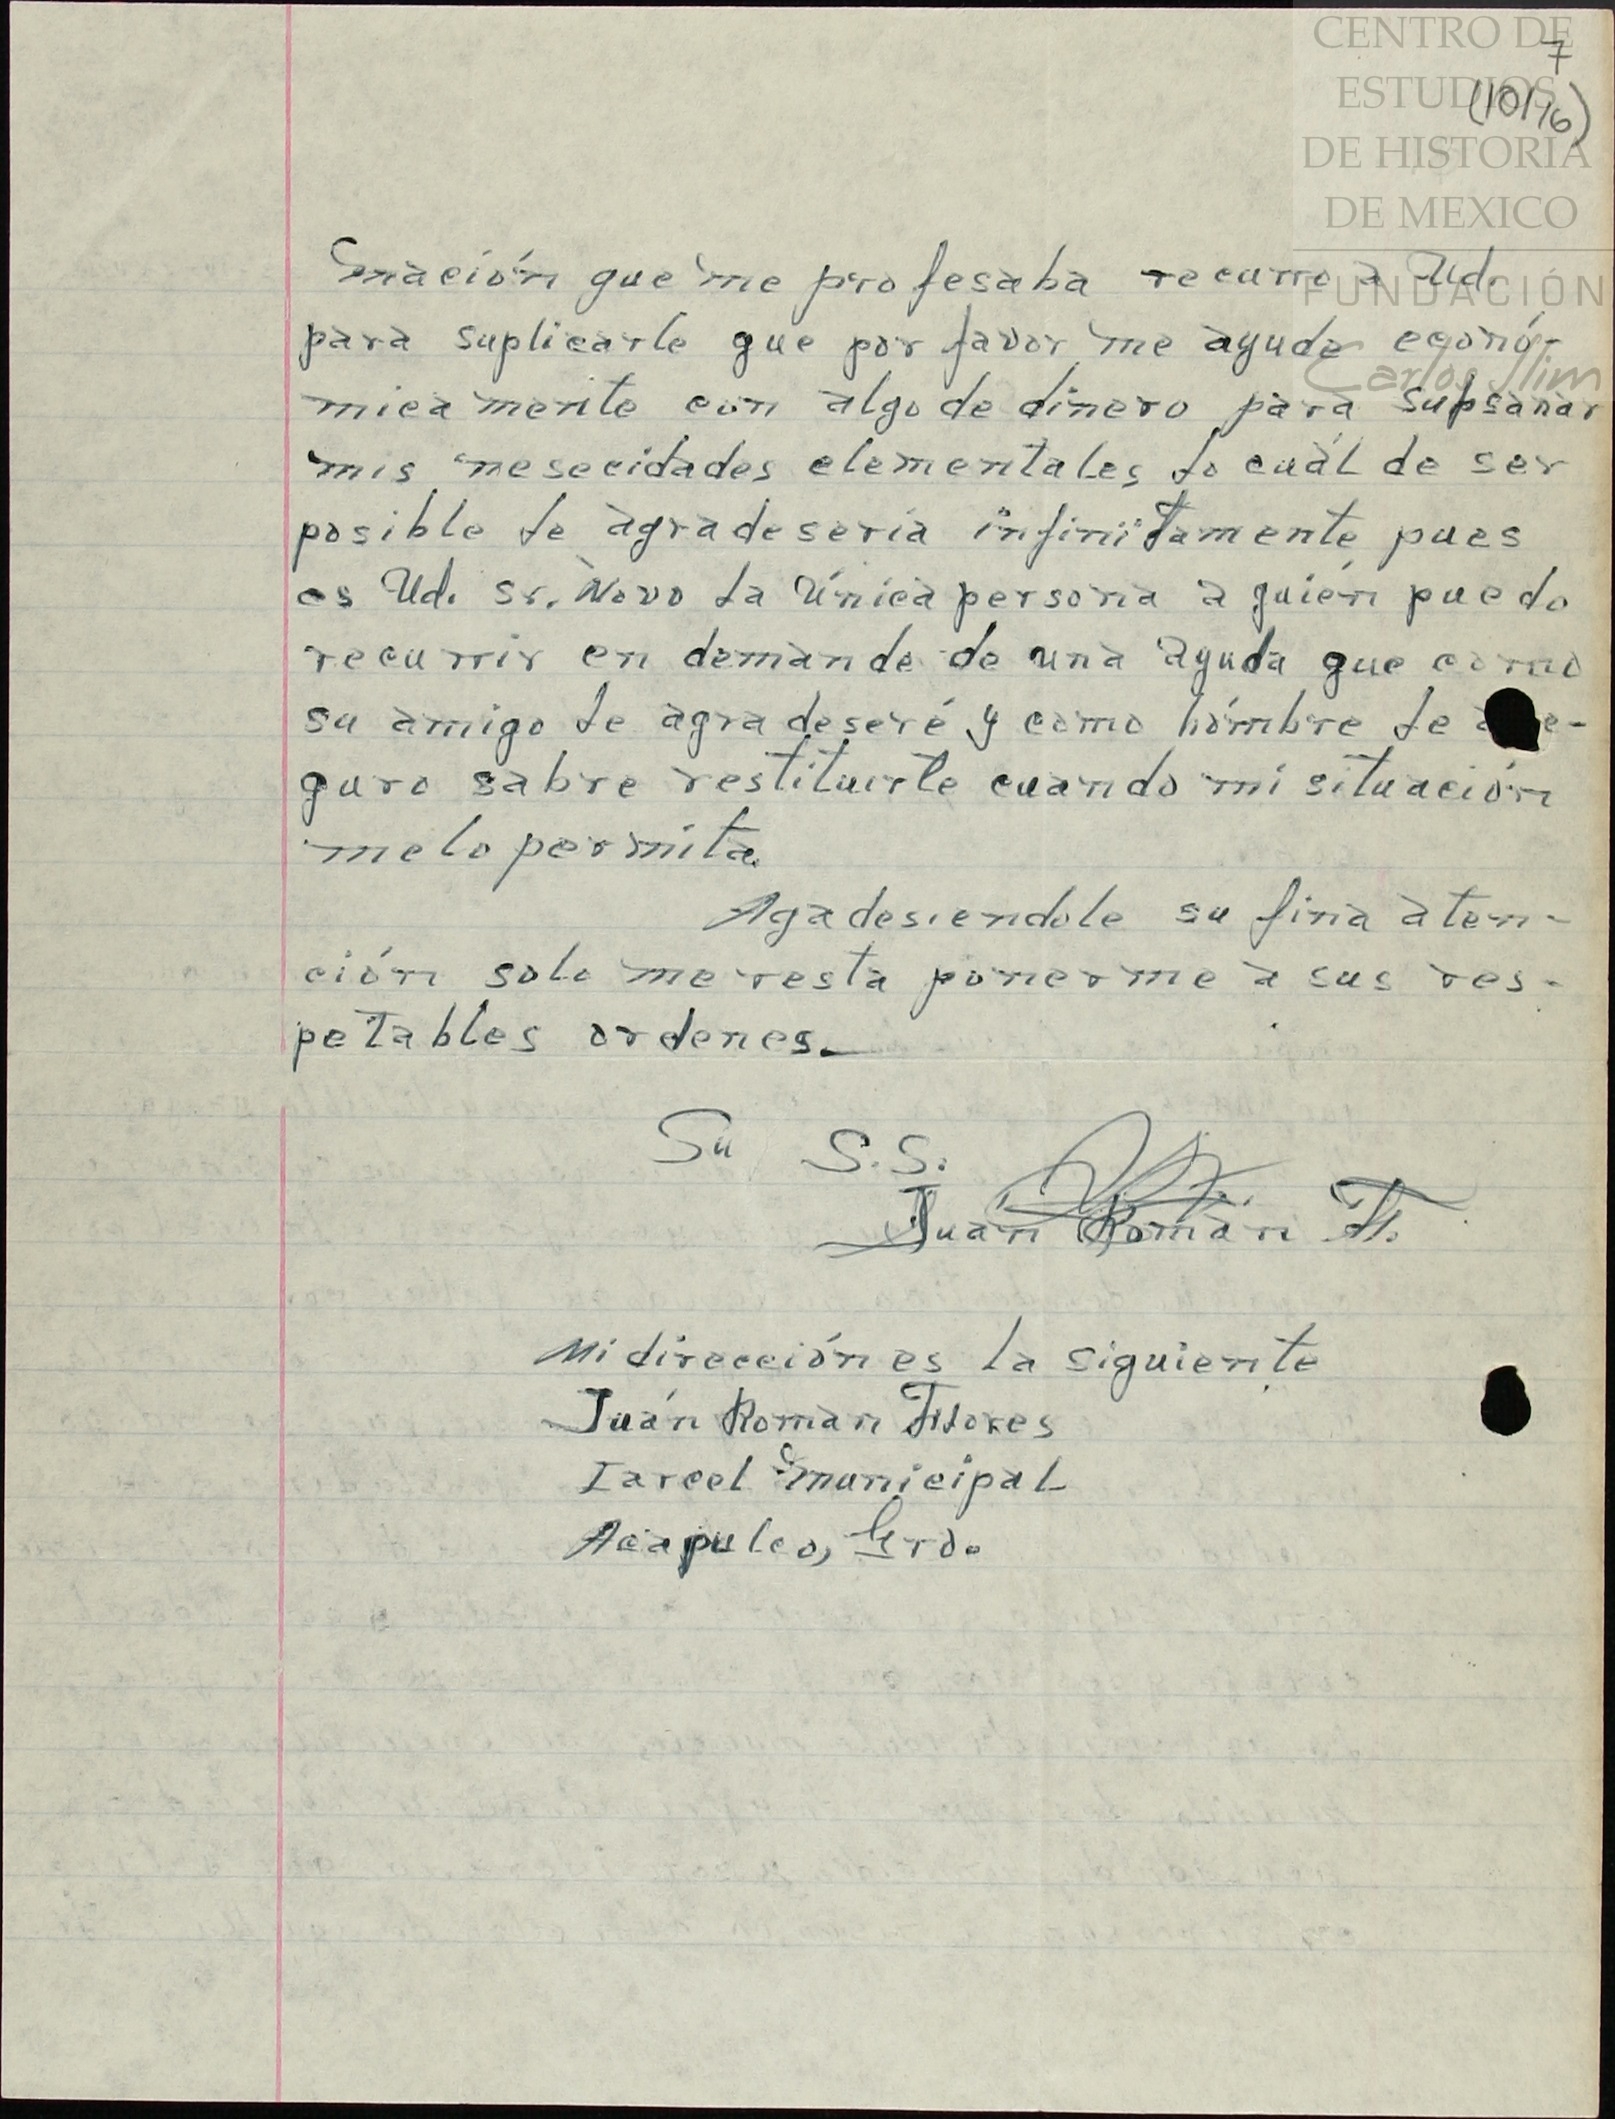 CENTRO DE
7
ESTUDIOS
(10/16)
DE HISTORIA
DE MEXICO
FUNDACIÓN
Carlos Slim
mación que me profesaba recurro a Ud.
para suplicarle que por favor me ayude econó-
micamente con algo de dinero para supsanar
mis nesecidades elementales lo cuál de ser
posible le agradeseria infinitamente pues
es Ud. Sr. Novo la única persona a quién puedo
recurrir en demande de una ayuda que como
su amigo le agradeseré y como hómbre le a e-
guro sabre restituirle cuando mi situación
me lo permita.
Agadesiendole su fina aten-
ción solo me resta ponerme a sus res-
petables ordenes.
Su S.S.
Juan Román F.
Mi dirección es la siguiente
Juán Román Flores
Carcel municipal
Acapulco, Gro.